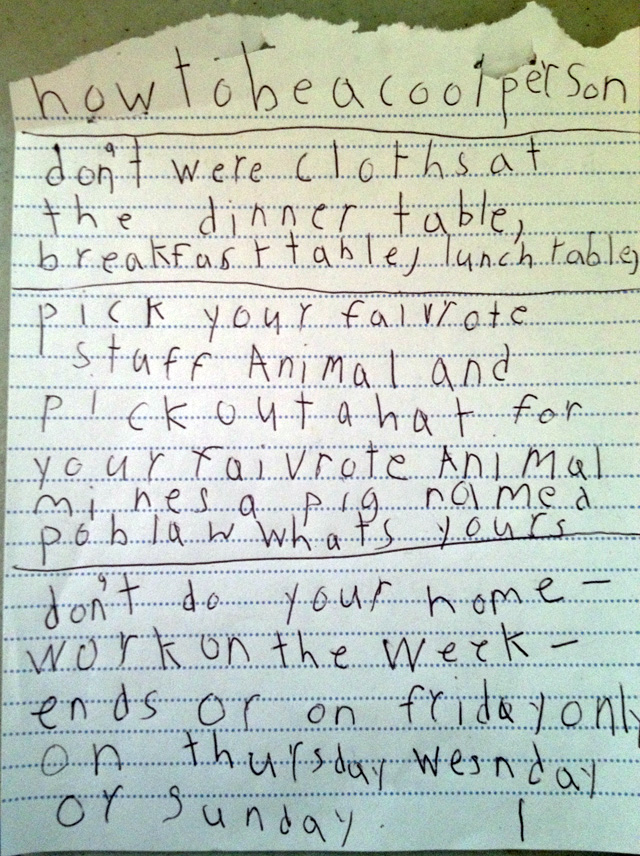 how to be a cool person
don't were cloths at
the dinner table,
breakfast table, lunch table,
pick your faivrote
staff Animal and
pick out a hat for
your faivrote Animal
mines a pig named
poblaw whats yours
don't do your home-
work on the week-
ends or on friday only
on thursday wesnday
or sunday.
1